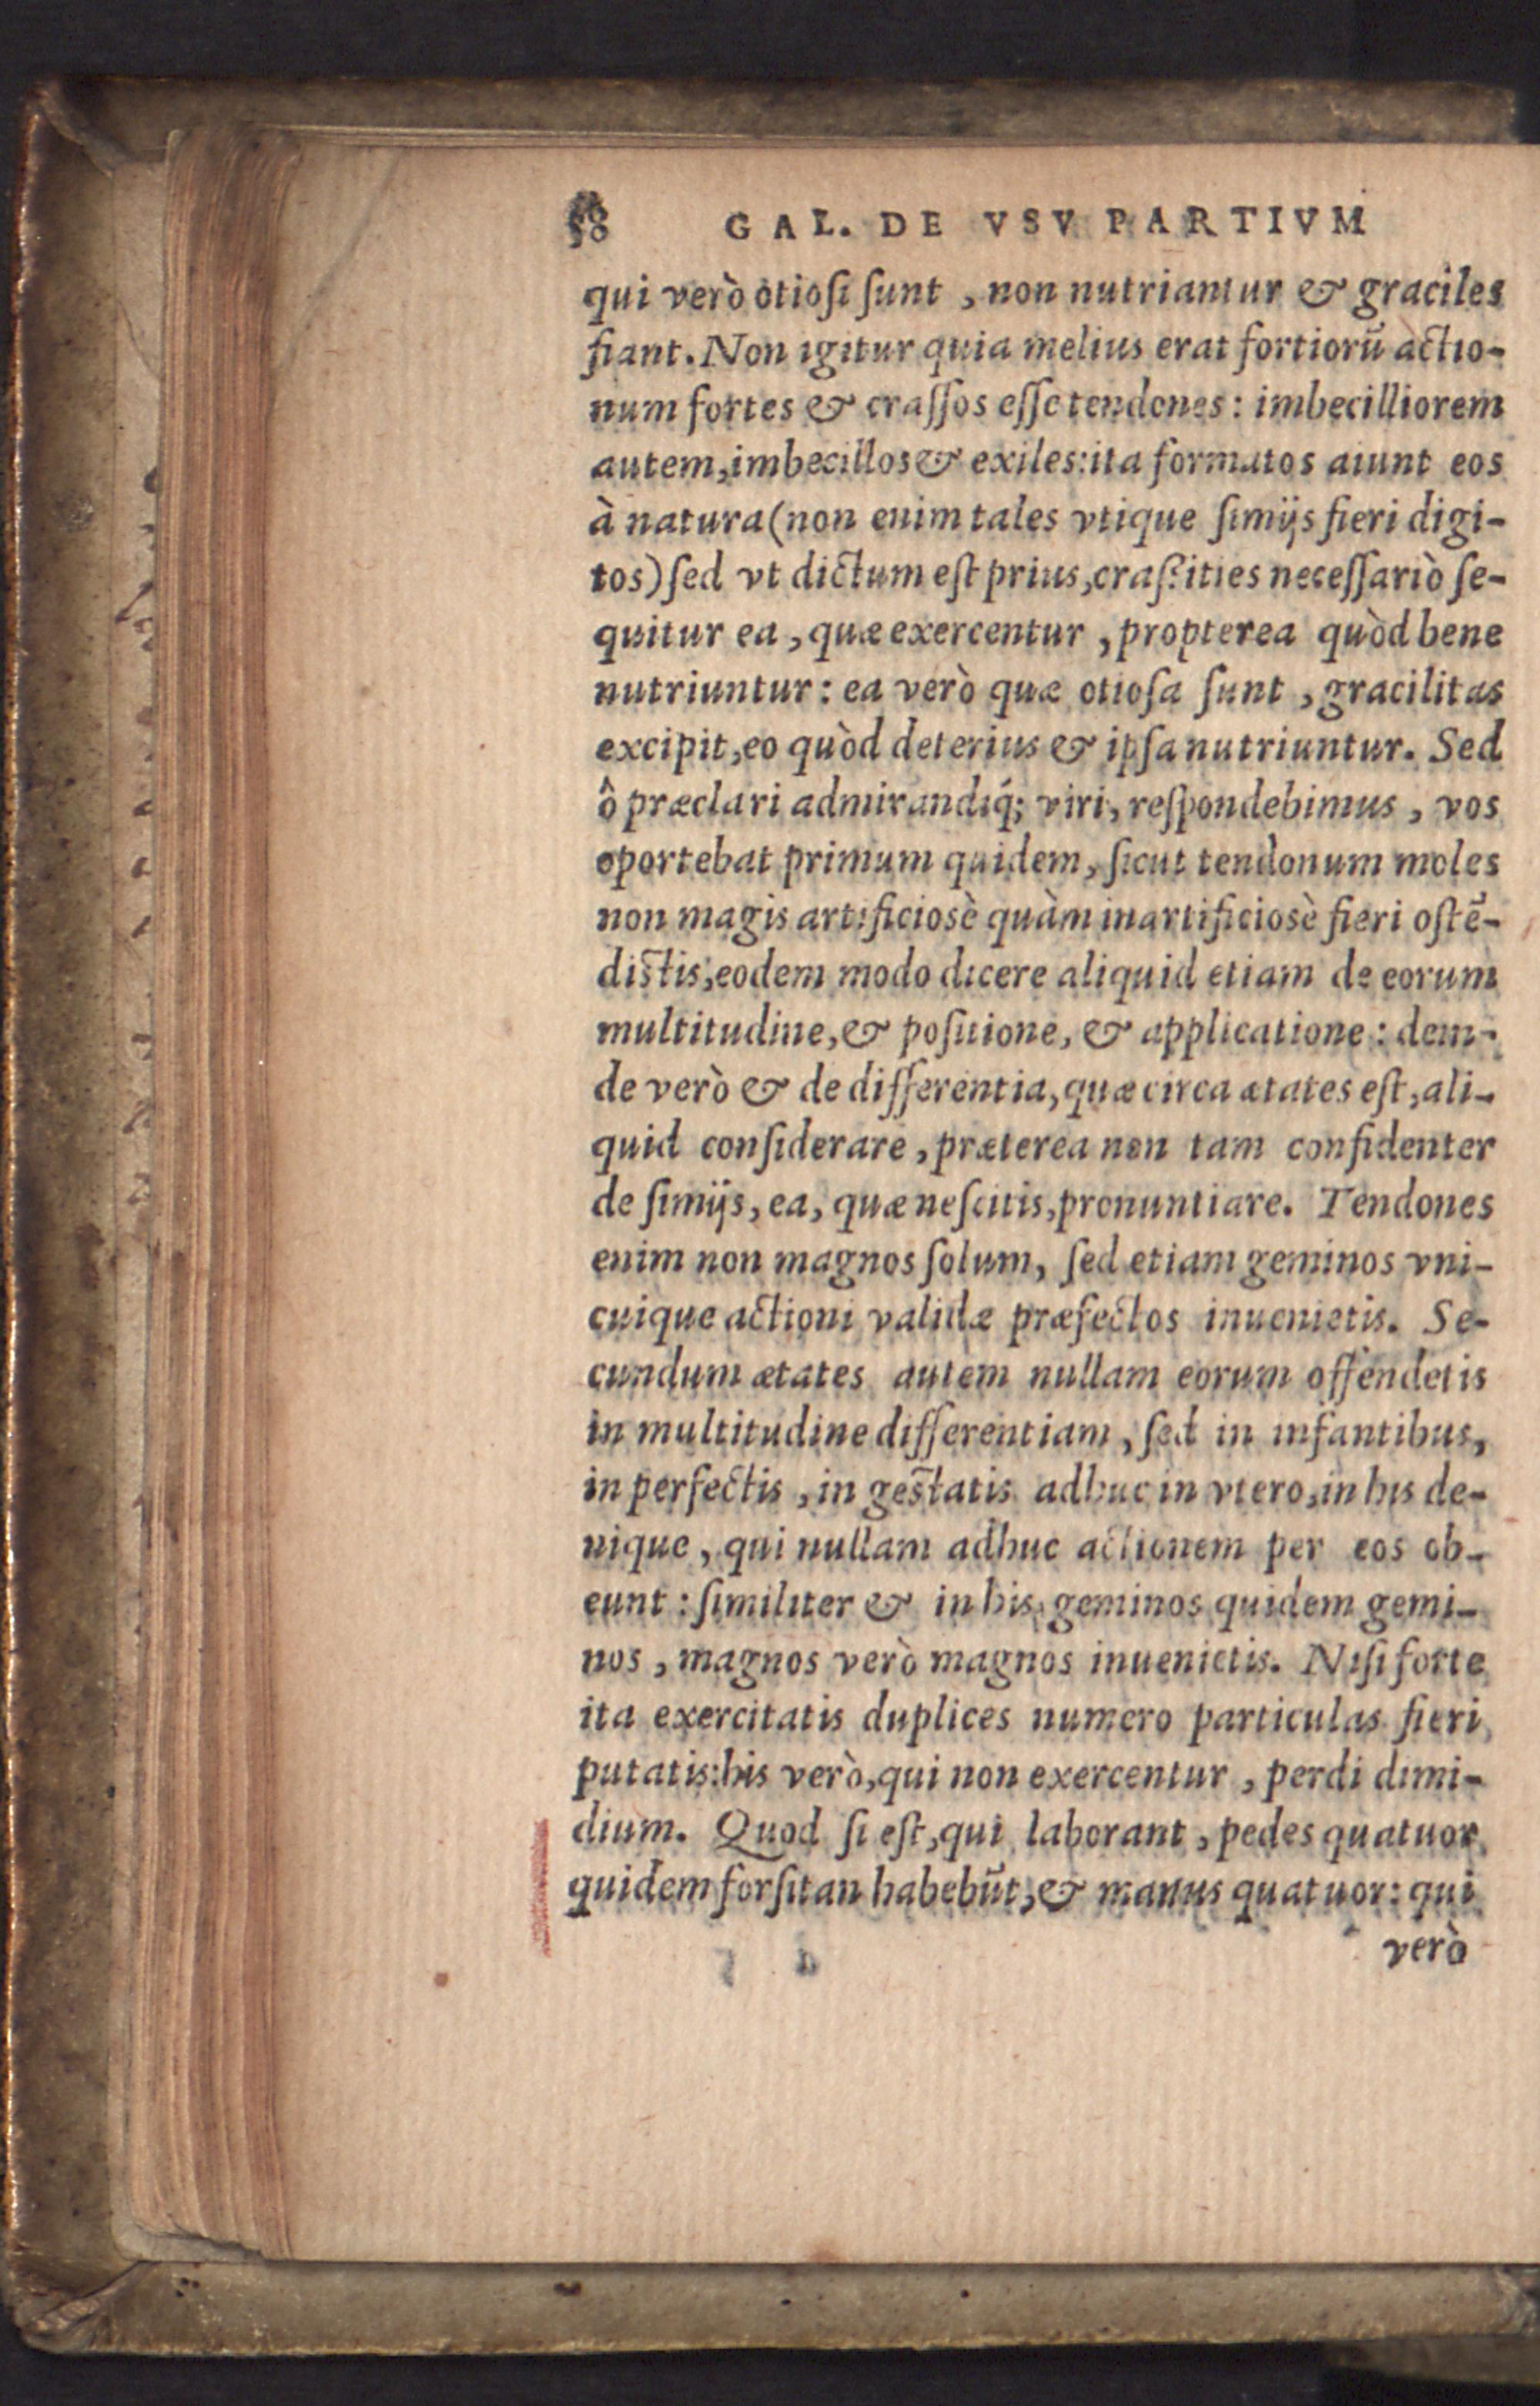 58 GAL. DE VSV PARTIVM
qui verò otioſi ſunt , non nutriantur & graciles
fiant. Non igitur quia melius erat fortiorũ àctio-
num fortes & craſſos eſſe tendones : imbecilliorem
autem, imbecillos & exiles: ita formatos aiunt eos
à natura (non enim tales vtique ſimijs fieri digi-
tos) ſed vt dictum eſt prius, craſsities neceſſariò ſe-
quitur ea , quæ exercentur , propterea quòd bene
nutriuntur : ea verò quæ otioſa ſunt , gracilitas
excipit, eo quòd deterius & ipſa nutriuntur. Sed
ô præclari admirandiq́; viri, reſpondebimus , vos
oportebat primum quidem, ſicut tendonum moles
non magis artificiosè quàm inartificiosè fieri oſtẽ-
distis, eodem modo dicere aliquid etiam de eorum
multitudine, & poſitione, & applicatione : dein-
de verò & de differentia, quæ circa ætates eſt, ali-
quid conſiderare , præterea non tam confidenter
de ſimijs, ea, quæ neſcitis, pronuntiare. Tendones
enim non magnos ſolum, ſed etiam geminos vni-
cuique actioni validæ præfectos inuenietis. Se-
cundum ætates autem nullam eorum offendetis
in multitudine differentiam , ſed in infantibus,
in perfectis , in gestatis adhuc in vtero, in his de-
nique , qui nullam adhuc actionem per eos ob-
eunt : ſimiliter & in his geminos quidem gemi-
nos , magnos verò magnos inuenietis. Niſi forte
ita exercitatis duplices numero particulas fieri
putatis: his verò, qui non exercentur , perdi dimi-
dium. Quod ſi eſt, qui laborant , pedes quatuor
quidem forſitan habebũt, & manus quatuor: qui
verò